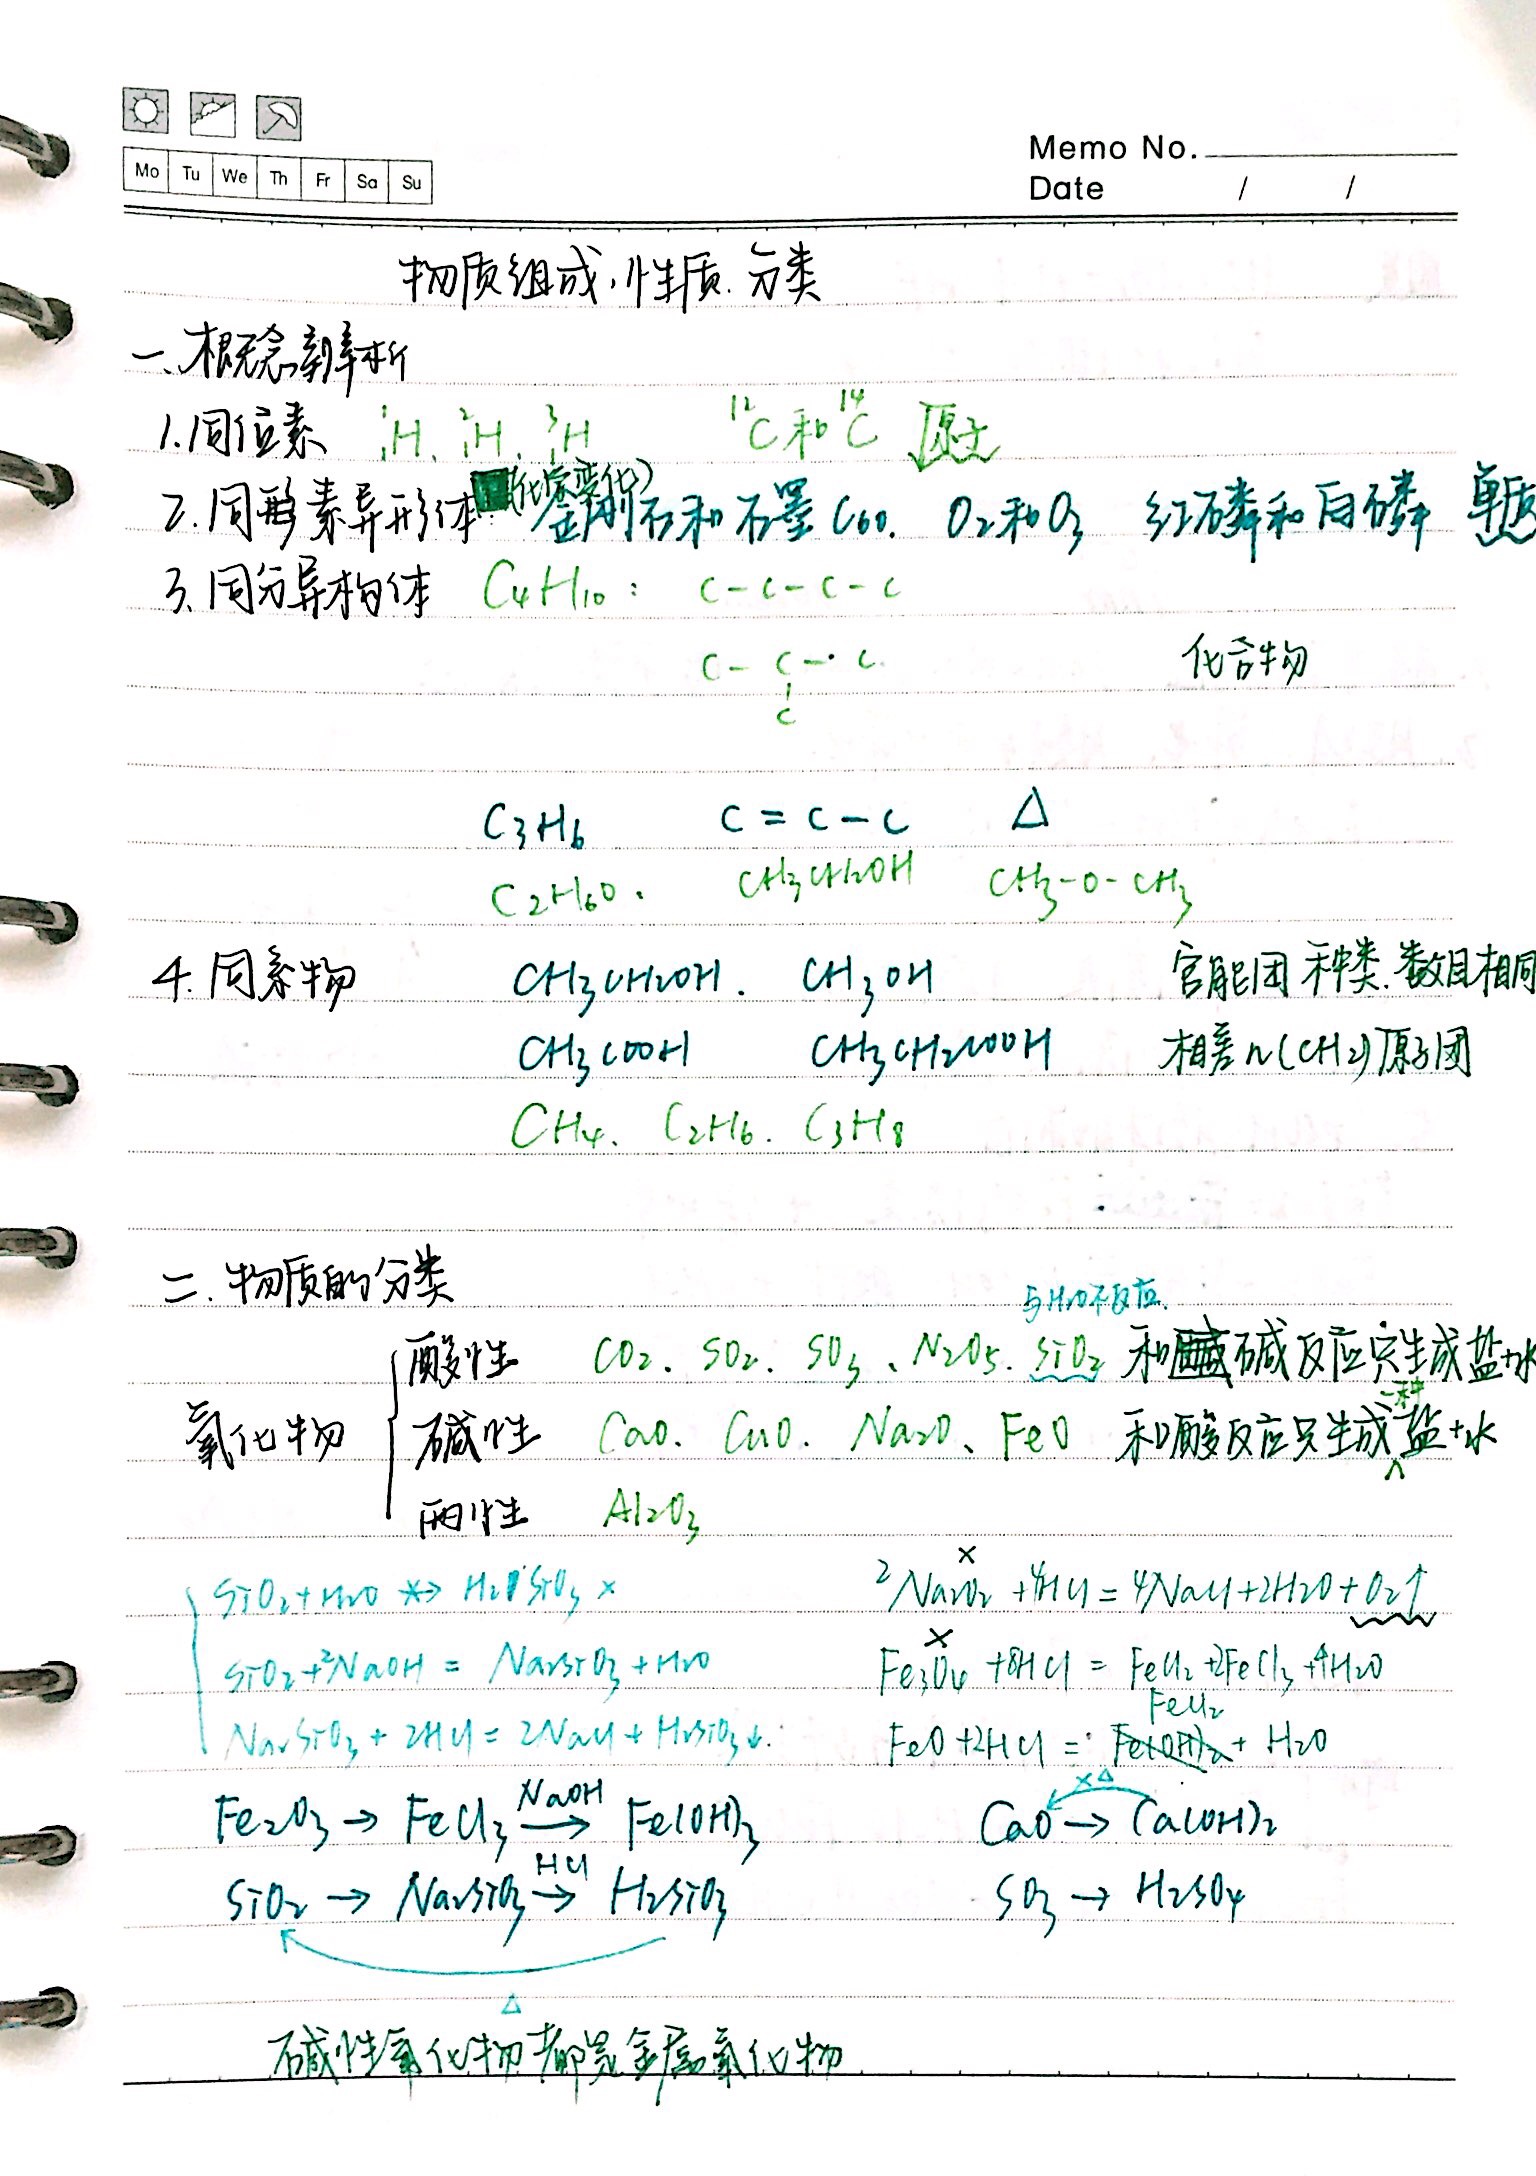 Mo Tu We Th Fr Sa Su
Memo No.
Date / /
物质组成、性质、分类
一、概念辨析
1.同位素 ¹₁H、²₁H、³₁H ¹²C和¹⁴C 原子
(化学变化)
2.同素异形体: 金刚石和石墨 C60、 O2和O3 红磷和白磷 单质
3.同分异构体 C4H10: C-C-C-C
C-C-C 化合物
C
C3H6 C=C-C △
C2H6O、 CH3CH2OH CH3-O-CH3
4.同系物 CH3CH2OH、 CH3OH 官能团种类、数目相同
CH3COOH CH3CH2COOH 相差n(CH2)原子团
CH4、C2H6、C3H8
二、物质的分类
与H2O不反应、
酸性 CO2、SO2、SO3、N2O5、SiO2 和碱反应只生成盐+水
氧化物 碱性 CaO、CuO、Na2O、FeO 和酸反应只生成一种盐+水
两性 Al2O3
SiO2+H2O ×→ H2SiO3 × 2Na2O2+4HCl=4NaCl+2H2O+O2↑ ×
SiO2+2NaOH=Na2SiO3+H2O Fe3O4+8HCl=FeCl2+2FeCl3+4H2O ×
Na2SiO3+2HCl=2NaCl+H2SiO3↓. FeO+2HCl=FeCl2+H2O
Fe2O3→FeCl3 NaOH→ Fe(OH)3 CaO→Ca(OH)2 ×△
SiO2→Na2SiO3 HCl→ H2SiO3 SO3→H2SO4
△
碱性氧化物都是金属氧化物